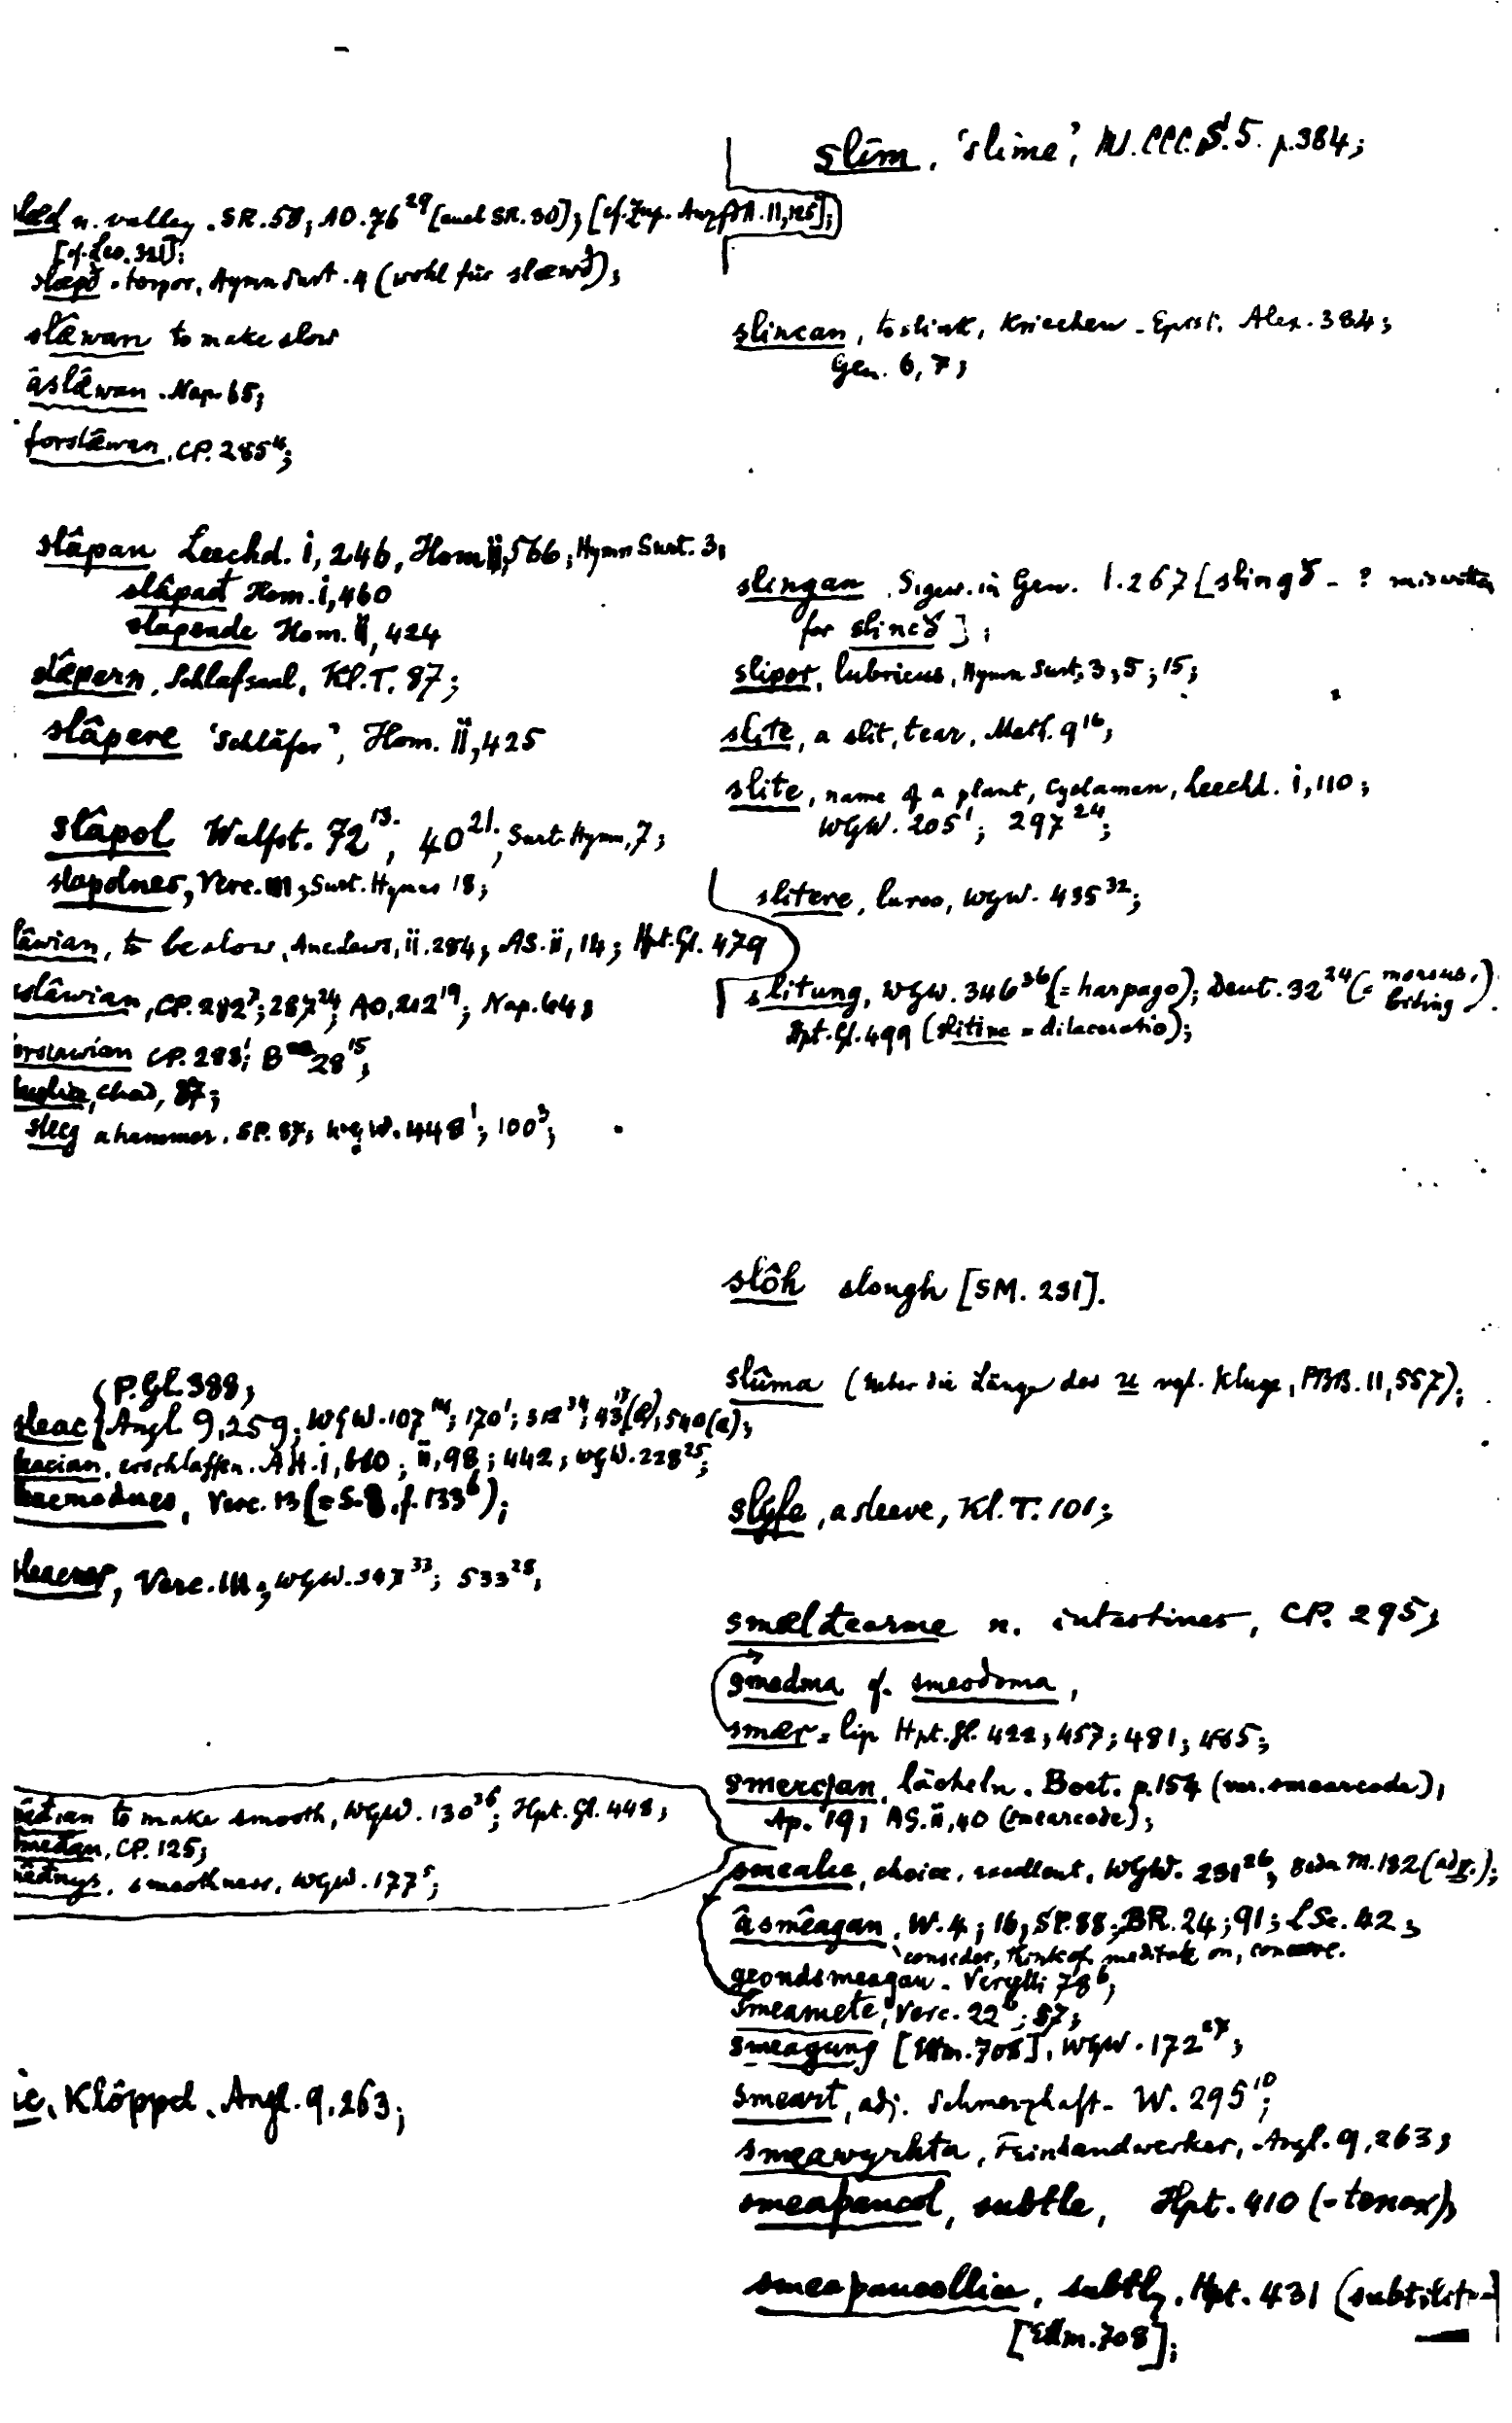 slæd n. valley. SR. 58; AO. 76²⁹ [and SR. 30]; [cf. Zup. AnzfdA. 11,125];
[cf. Leo. 321];
slæpð. torpor, Hymn Surt. 4 (wohl für slæwð);
slæwan to make slow
âslæwan. Nap. 65;
forslæwan, CP. 285⁴;
slâpan Leechd. i, 246, Hom ii, 566; Hymn Surt. 3;
slâpað Hom. i, 460
slapende Hom. ii, 424
slæpern, Schlafsaal, Kl.T. 87;
slâpere 'Schläfer', Hom. ii, 425
slâpol Wulfst. 72¹³; 40²¹; Surt. Hymn, 7;
slapolnes, Verc. III; Surt. Hymns 18;
lâwian, to be slow, Anc. Laws, ii. 284; AS. ii, 14; Hpt. Gl. 479
slâwian, CP. 282⁷; 287²⁴; AO. 212¹⁹; Nap. 64;
orslawian CP. 283¹; 28¹⁵;
Chad, 87;
slecg a hammer. SP. 87; WgW. 448¹; 100³;
P. Gl. 388;
sleac Angl. 9,259; WgW. 107; 170¹; 540(a);
leacian, erschlaffen. AH. i, 610; ii, 98; 442; WgW. 228²⁵;
Verc. 13 (= S. 8. f. 133⁶);
sleacnes, Verc. III; WgW. 347³³; 533²⁸;
to make smooth, WgW. 130³⁶; Hpt. Gl. 448;
CP. 125;
smoothness, WgW. 177⁵;
ic, Klöppel. Angl. 9, 263;
slîm, 'slime', M. CCC. S. 5. p. 384;
slincan, to slink, kriechen. Epist. Alex. 384;
Gen. 6, 7;
slingan. Sigew. in Gen. l. 267 [slingð - ? miswritten
for slincð];
slipor, lubricus, Hymn Surt. 3; 5; 15;
slite, a slit, tear, Math. 9¹⁶;
slite, name of a plant, Cyclamen, Leechd. i, 110;
WGW. 205¹; 297²⁴;
slitere, lurco, WGW. 435³²;
slitung, WGW. 346³⁶ (= harpago); Deut. 32²⁴ (= morsus, biting).
Hpt. Gl. 499 (slitinc = dilaceratio);
slôh slough [SM. 231].
slûma (ueber die Länge des u vgl. Kluge, PBB. 11, 557);
slŷfe, a sleeve, Kl. T. 101;
smælþearme n. intestines, CP. 295;
smedma cf. smeodoma,
smær = lip Hpt. Gl. 422; 457; 481; 465;
smercian, lächeln. Boet. p. 154 (var. smearcode);
Ap. 19; AS. ii, 40 (smearcode);
smealic, choice, excellent, WGW. 231²⁶; Beda M. 182 (adj.);
âsmêagan, W. 4; 16; SP. 88; BR. 24; 91; LSc. 42;
consider, think of, meditate on, conceive.
geondsmeagan. Vercelli 78⁶;
smeamete, Verc. 22⁶; 87;
smeagung [Ettm. 708], WGW. 172²⁷;
smeart, adj. schmerzhaft. W. 295¹⁰;
smeawyrhta, Feinhandwerker, Angl. 9, 263;
smeaþancol, subtle, Hpt. 410 (= tenax);
smeaþancollice, subtly. Hpt. 431
[Ettm. 708];